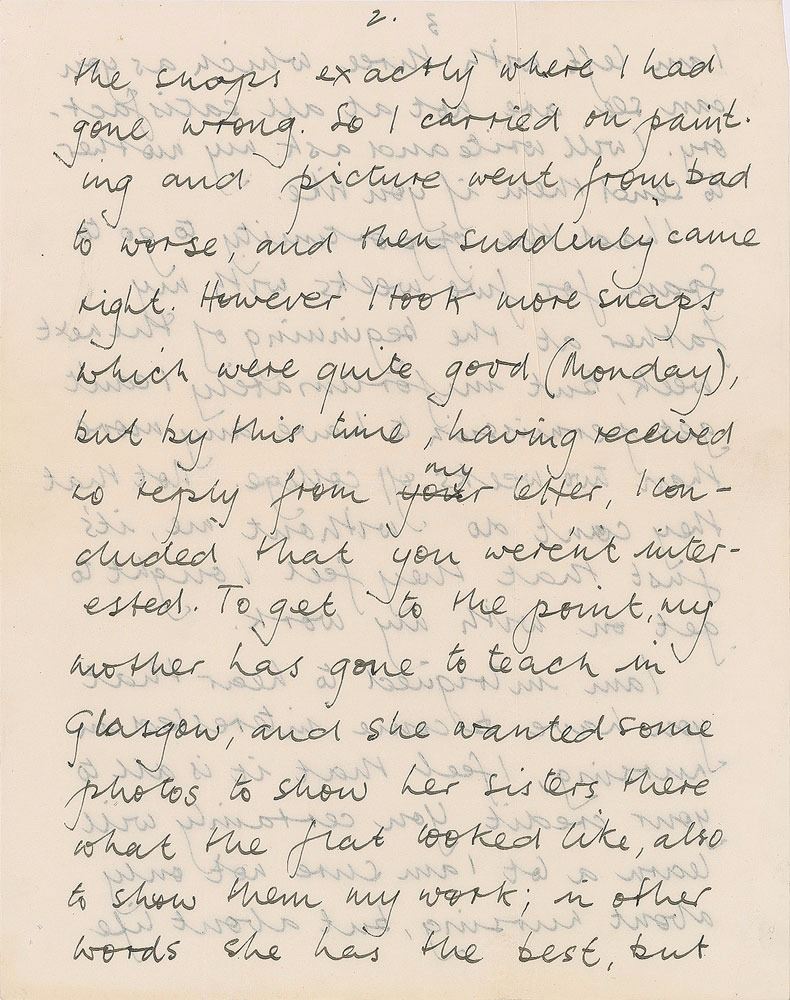 2.
the snaps exactly where I had
gone wrong. So I carried on paint-
ing and picture went from bad
to worse, and then suddenly came
right. However I took more snaps
which were quite good (Monday),
but by this time, having received
my
no reply from your letter, I con-
cluded that you weren't inter-
ested. To get to the point, my
mother has gone to teach in
Glasgow, and she wanted some
photos to show her sisters there
what the flat looked like, also
to show them my work; in other
words she has the best, but